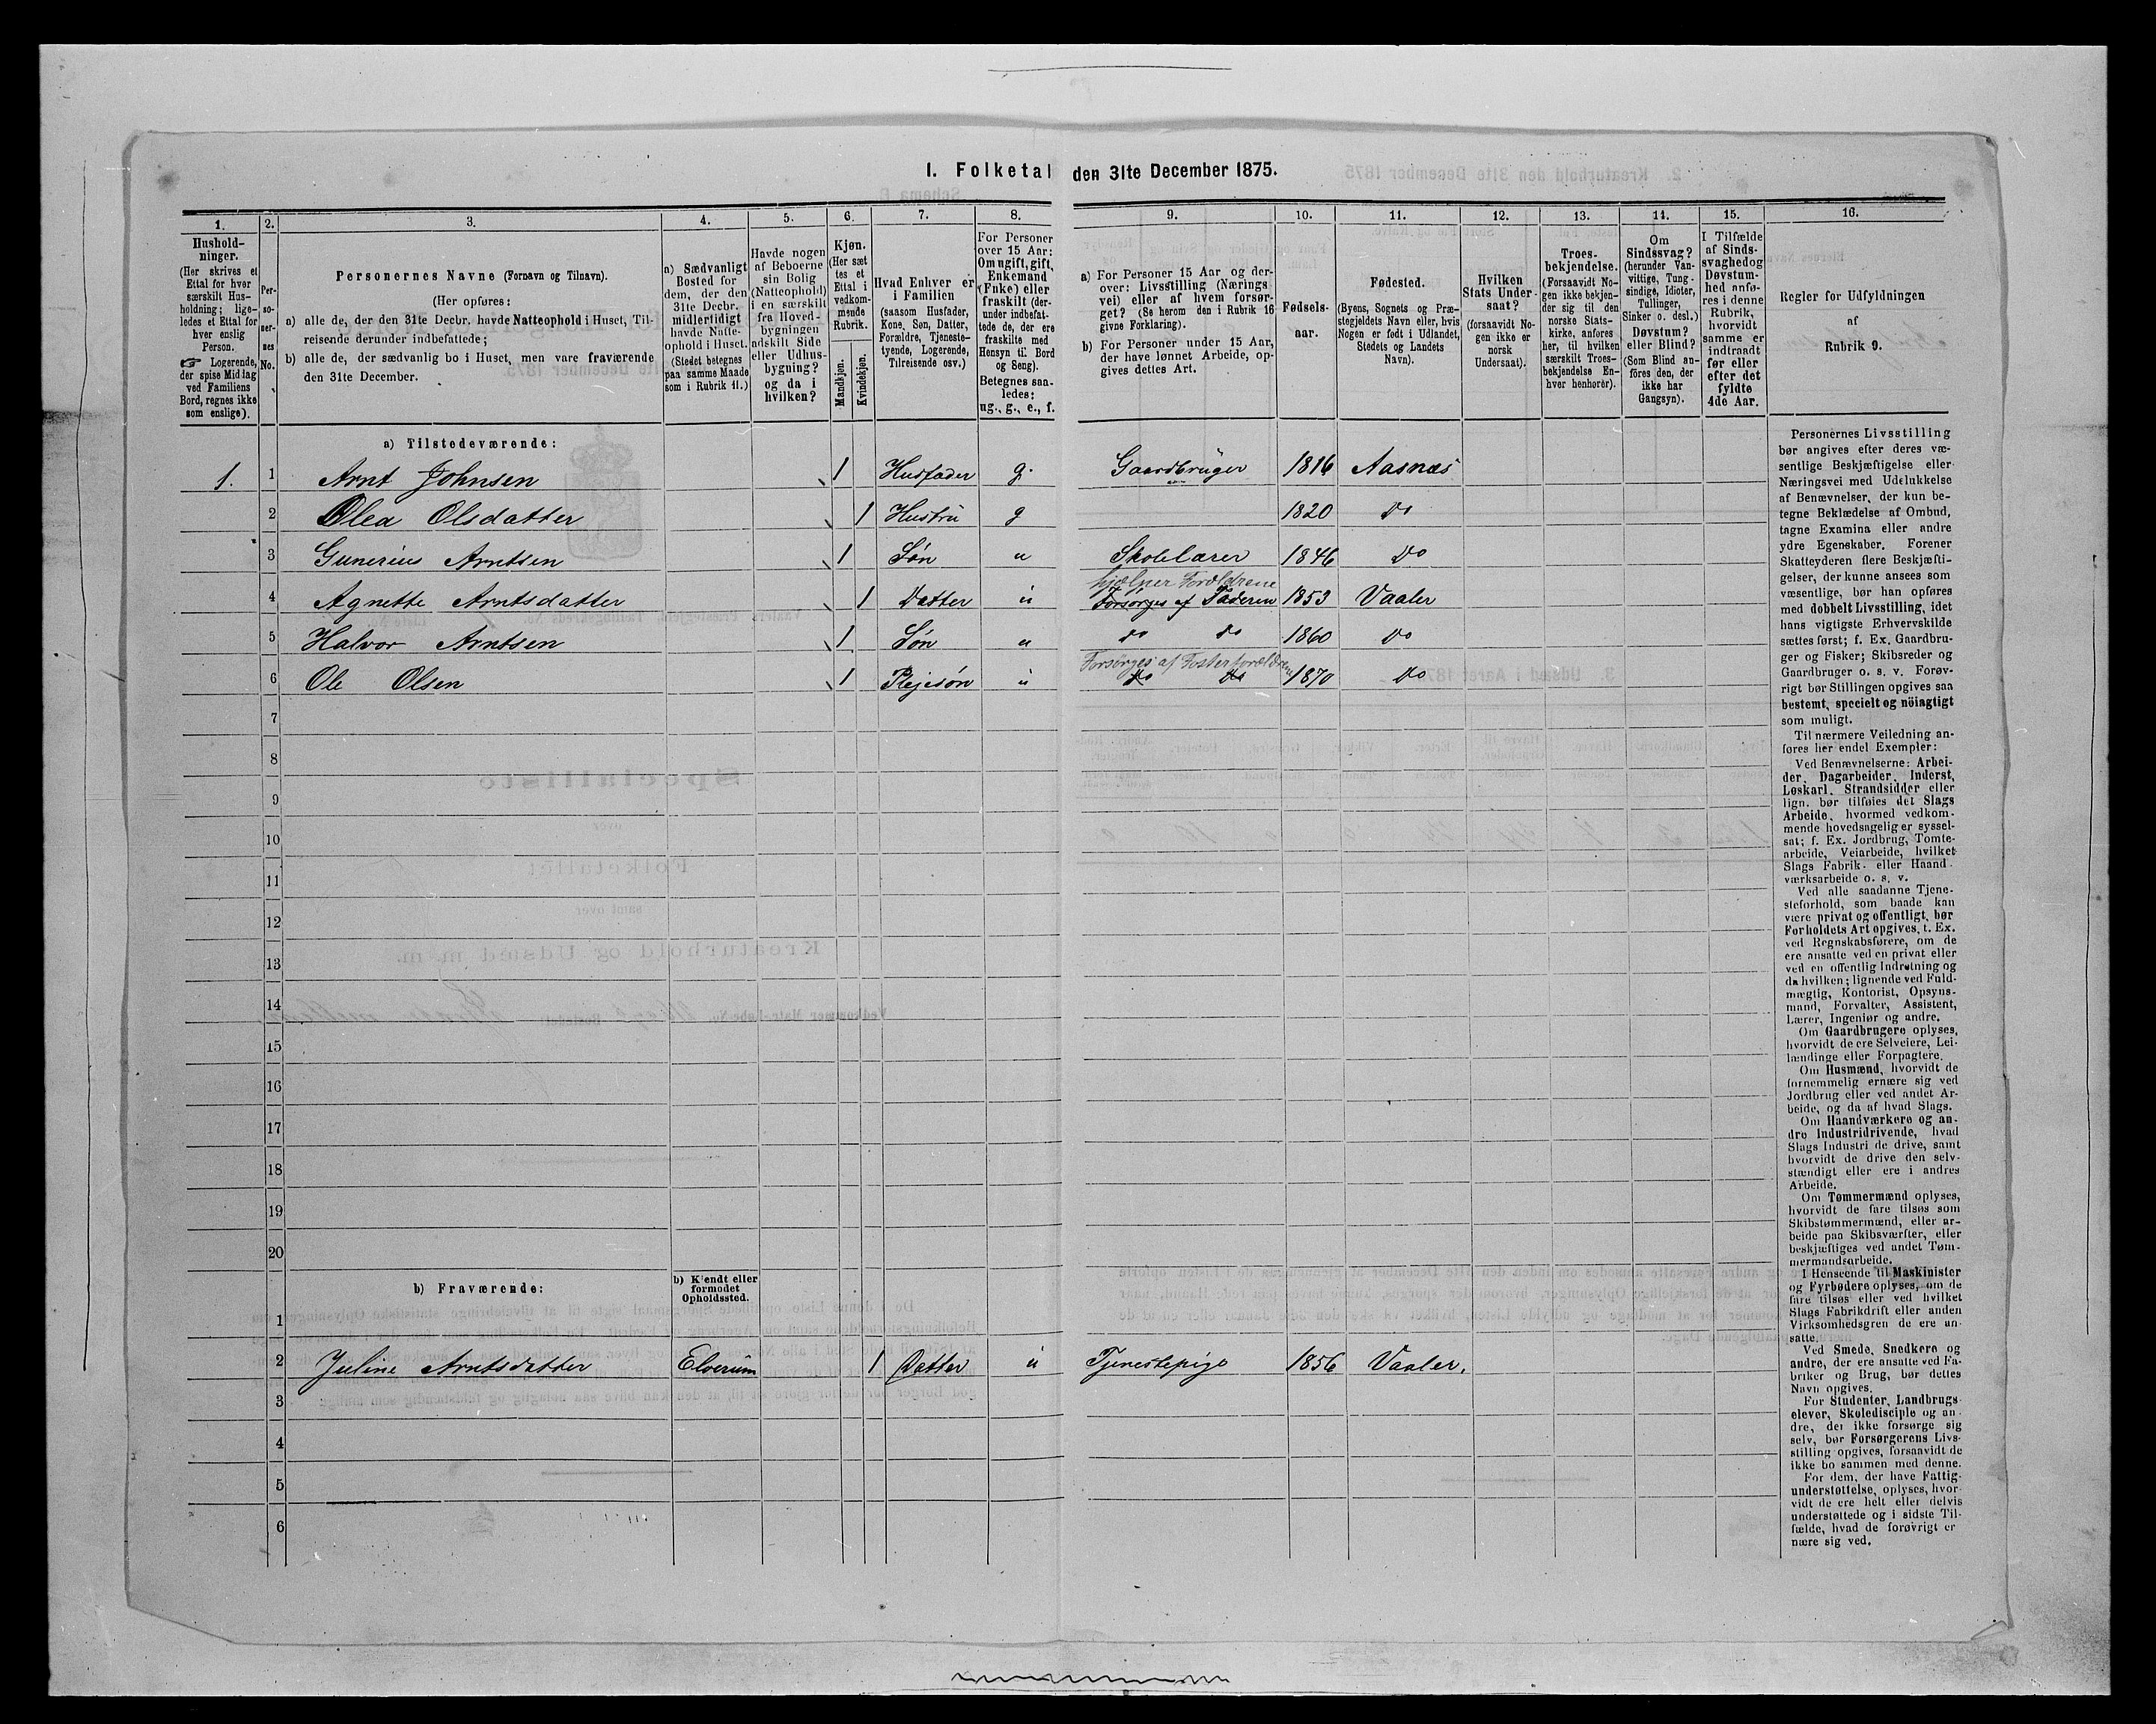 1. Folketal den 31te December 1875.
1.
Hushold-
ninger.
(Her skrives et
Ettal for hver
særskilt Hus-
holdning; lige-
ledes et Ettal for
hver enslig
Person.
☞ Logerende,
der spise Middag
ved Familiens
Bord, regnes ikke
som enslige).
2.
Per-
so-
ner-
nes
No.
3.
Personernes Navne (Fornavn og Tilnavn).
(Her opføres:
a) alle de, der den 31te Decbr. havde Natteophold i Huset, Til-
reisende derunder indbefattede;
b) alle de, der sædvanlig bo i Huset, men vare fraværende
den 31te December.
4.
a) Sædvanligt
Bosted for
dem, der den
31te Decbr.
midlertidigt
havde Natte-
ophold i Huset.
(Stedet betegnes
paa samme Maade
som i Rubrik 11.)
5.
Havde nogen
af Beboerne
sin Bolig
(Natteophold)
i en særskilt
fra Hoved-
bygningen
adskilt Side
eller Udhus-
bygning?
og da i
hvilken?
6.
Kjøn.
(Her sæt
tes et
Ettal i
vedkom-
mende
Rubrik.
Mandkjøn.
Kvindekjøn.
7.
Hvad Enhver er
i Familien
(saasom Husfader,
Kone, Søn, Datter,
Forældre, Tjeneste-
tyende, Logerende,
Tilreisende osv.)
8.
For Personer
over 15 Aar:
Om ugift, gift,
Enkemand
(Enke) eller
fraskilt (der-
under indbefat-
tede de, der ere
fraskilte med
Hensyn til Bord
og Seng).
Betegnes saa-
ledes:
ug., g., e., f.
9.
a) For Personer 15 Aar og der-
over: Livsstilling (Nærings
vei) eller af hvem forsør-
get? (Se herom den i Rubrik 16
givne Forklaring).
b) For Personer under 15 Aar,
der have lønnet Arbeide, op-
gives dettes Art.
10.
Fødsels-
aar.
11.
Fødested.
(Byens, Sognets og Præ-
stegjeldets Navn eller, hvis
Nogen er født i Udlandet,
Stedets og Landets
Navn).
12.
Hvilken
Stats Under-
saat?
(forsaavidt No-
gen ikke er
norsk
Undersaat).
13.
Troes-
bekjendelse.
(Forsaavidt No-
gen ikke bekjen-
der sig til den
norske Stats-
kirke, anføres
her, til hvilken
særskilt Troes-
bekjendelse En-
hver henhører).
14.
Om
Sindssvag?
(herunder Van-
vittige, Tung-
sindige, Idioter,
Tullinger,
Sinker o. desl.)
Døvstum?
eller Blind?
(Som Blind an-
føres den, der
ikke har
Gangsyn).
15.
I Tilfælde
af Sinds-
svaghed og
Døvstum-
hed anfø-
res i denne
Rubrik,
hvorvidt
samme er
indtraadt
før eller
efter det
fyldte
4de Aar.
16.
Regler for Udfyldningen
af
Rubrik 9.
a) Tilstedeværende:
1. 1 Arnt Johnsen 1 Husfader g. Gaardbruger 1816 Aasnæs
2 Olea Olsdatter 1 Hustru g 1820 Do
3 Gunerius Arntsen 1 Søn u Skolelærer 1846 Do
hjælper Forældrene
4 Agnette Arntsdatter 1 Datter u Forsørges af Faderen 1853 Vaaler
5 Halvor Arntsen 1 Søn u do do 1860 Do
Forsørges af Fosterforældrene
6 Ole Olsen 1 Plejesøn u do do 1870 Do
7
8
9
10
11
12
13
14
15
16
17
18
19
20
b) Fraværende:
b) Kjendt eller
formodet
Opholdssted.
1
2 Juline Arntsdatter Elverum 1 Datter u Tjenestepige 1856 Vaaler.
3
4
5
6
Personernes Livsstilling
bør angives efter deres væ-
sentlige Beskjæftigelse eller
Næringsvei med Udelukkelse
af Benævnelser, der kun be-
tegne Beklædelse af Ombud,
tagne Examina eller andre
ydre Egenskaber. Forener
Skatteyderen flere Beskjæfti-
gelser, der kunne ansees som
væsentlige, bør han opføres
med dobbelt Livsstilling, idet
hans vigtigste Erhvervskilde
sættes først; f. Ex. Gaardbru-
ger og Fisker; Skibsreder og
Gaardbruger o. s. v. Forøv-
rigt bør Stillingen opgives saa
bestemt, specielt og nöiagtigt
som muligt.
Til nærmere Veiledning an-
føres her endel Exempler:
Ved Benævnelserne: Arbei-
der, Dagarbeider, Inderst,
Løskarl, Strandsidder eller
lign. bør tilføies det Slags
Arbeide, hvormed vedkom-
mende hovedsagelig er syssel-
sat; f. Ex. Jordbrug, Tomte-
arbeide, Veiarbeide, hvilket
Slags Fabrik- eller Haand-
værksarbeide o. s. v.
Ved alle saadanne Tjene-
steforhold, som baade kan
være privat og offentligt, bør
Forholdets Art opgives, t. Ex.
ved Regnskabsførere, om de
ere ansatte ved en privat eller
ved en offentlig Indretning og
da hvilken; lignende ved Fuld-
mægtig, Kontorist, Opsyns-
mand, Forvalter, Assistent,
Lærer, Ingeniør og andre.
Om Gaardbrugere oplyses,
hvorvidt de ere Selveiere, Lei-
lændinge eller Forpagtere.
Om Husmænd, hvorvidt de
fornemmelig ernære sig ved
Jordbrug eller ved andet Ar-
beide, og da af hvad Slags.
Om Haandværkere og an-
dre Industridrivende, hvad
Slags Industri de drive, samt
hvorvidt de drive den selv-
stændigt eller ere i andres
Arbeide.
Om Tømmermænd oplyses,
hvorvidt de fare tilsøs som
Skibstømmermænd, eller ar-
beide paa Skibsværfter, eller
beskjæftiges ved andet Tøm-
mermandsarbeide.
I Henseende til Maskinister
og Fyrbødere oplyses, om de
fare tilsøs eller ved hvilket
Slags Fabrikdrift eller anden
Virksomhedsgren de ere an-
satte.
Ved Smede, Snedkere og
andre, der ere ansatte ved Fa-
briker og Brug, bør dettes
Navn opgives.
For Studenter, Landbrugs-
elever, Skoledisciple og an-
dre, der ikke forsørge sig
selv, bør Forsørgerens Livs-
stilling opgives, forsaavidt de
ikke bo sammen med denne.
For dem, der have Fattig-
understøttelse, oplyses, hvor-
vidt de ere helt eller delvis
understøttede og i sidste Til-
fælde, hvad de forøvrigt er
nære sig ved.